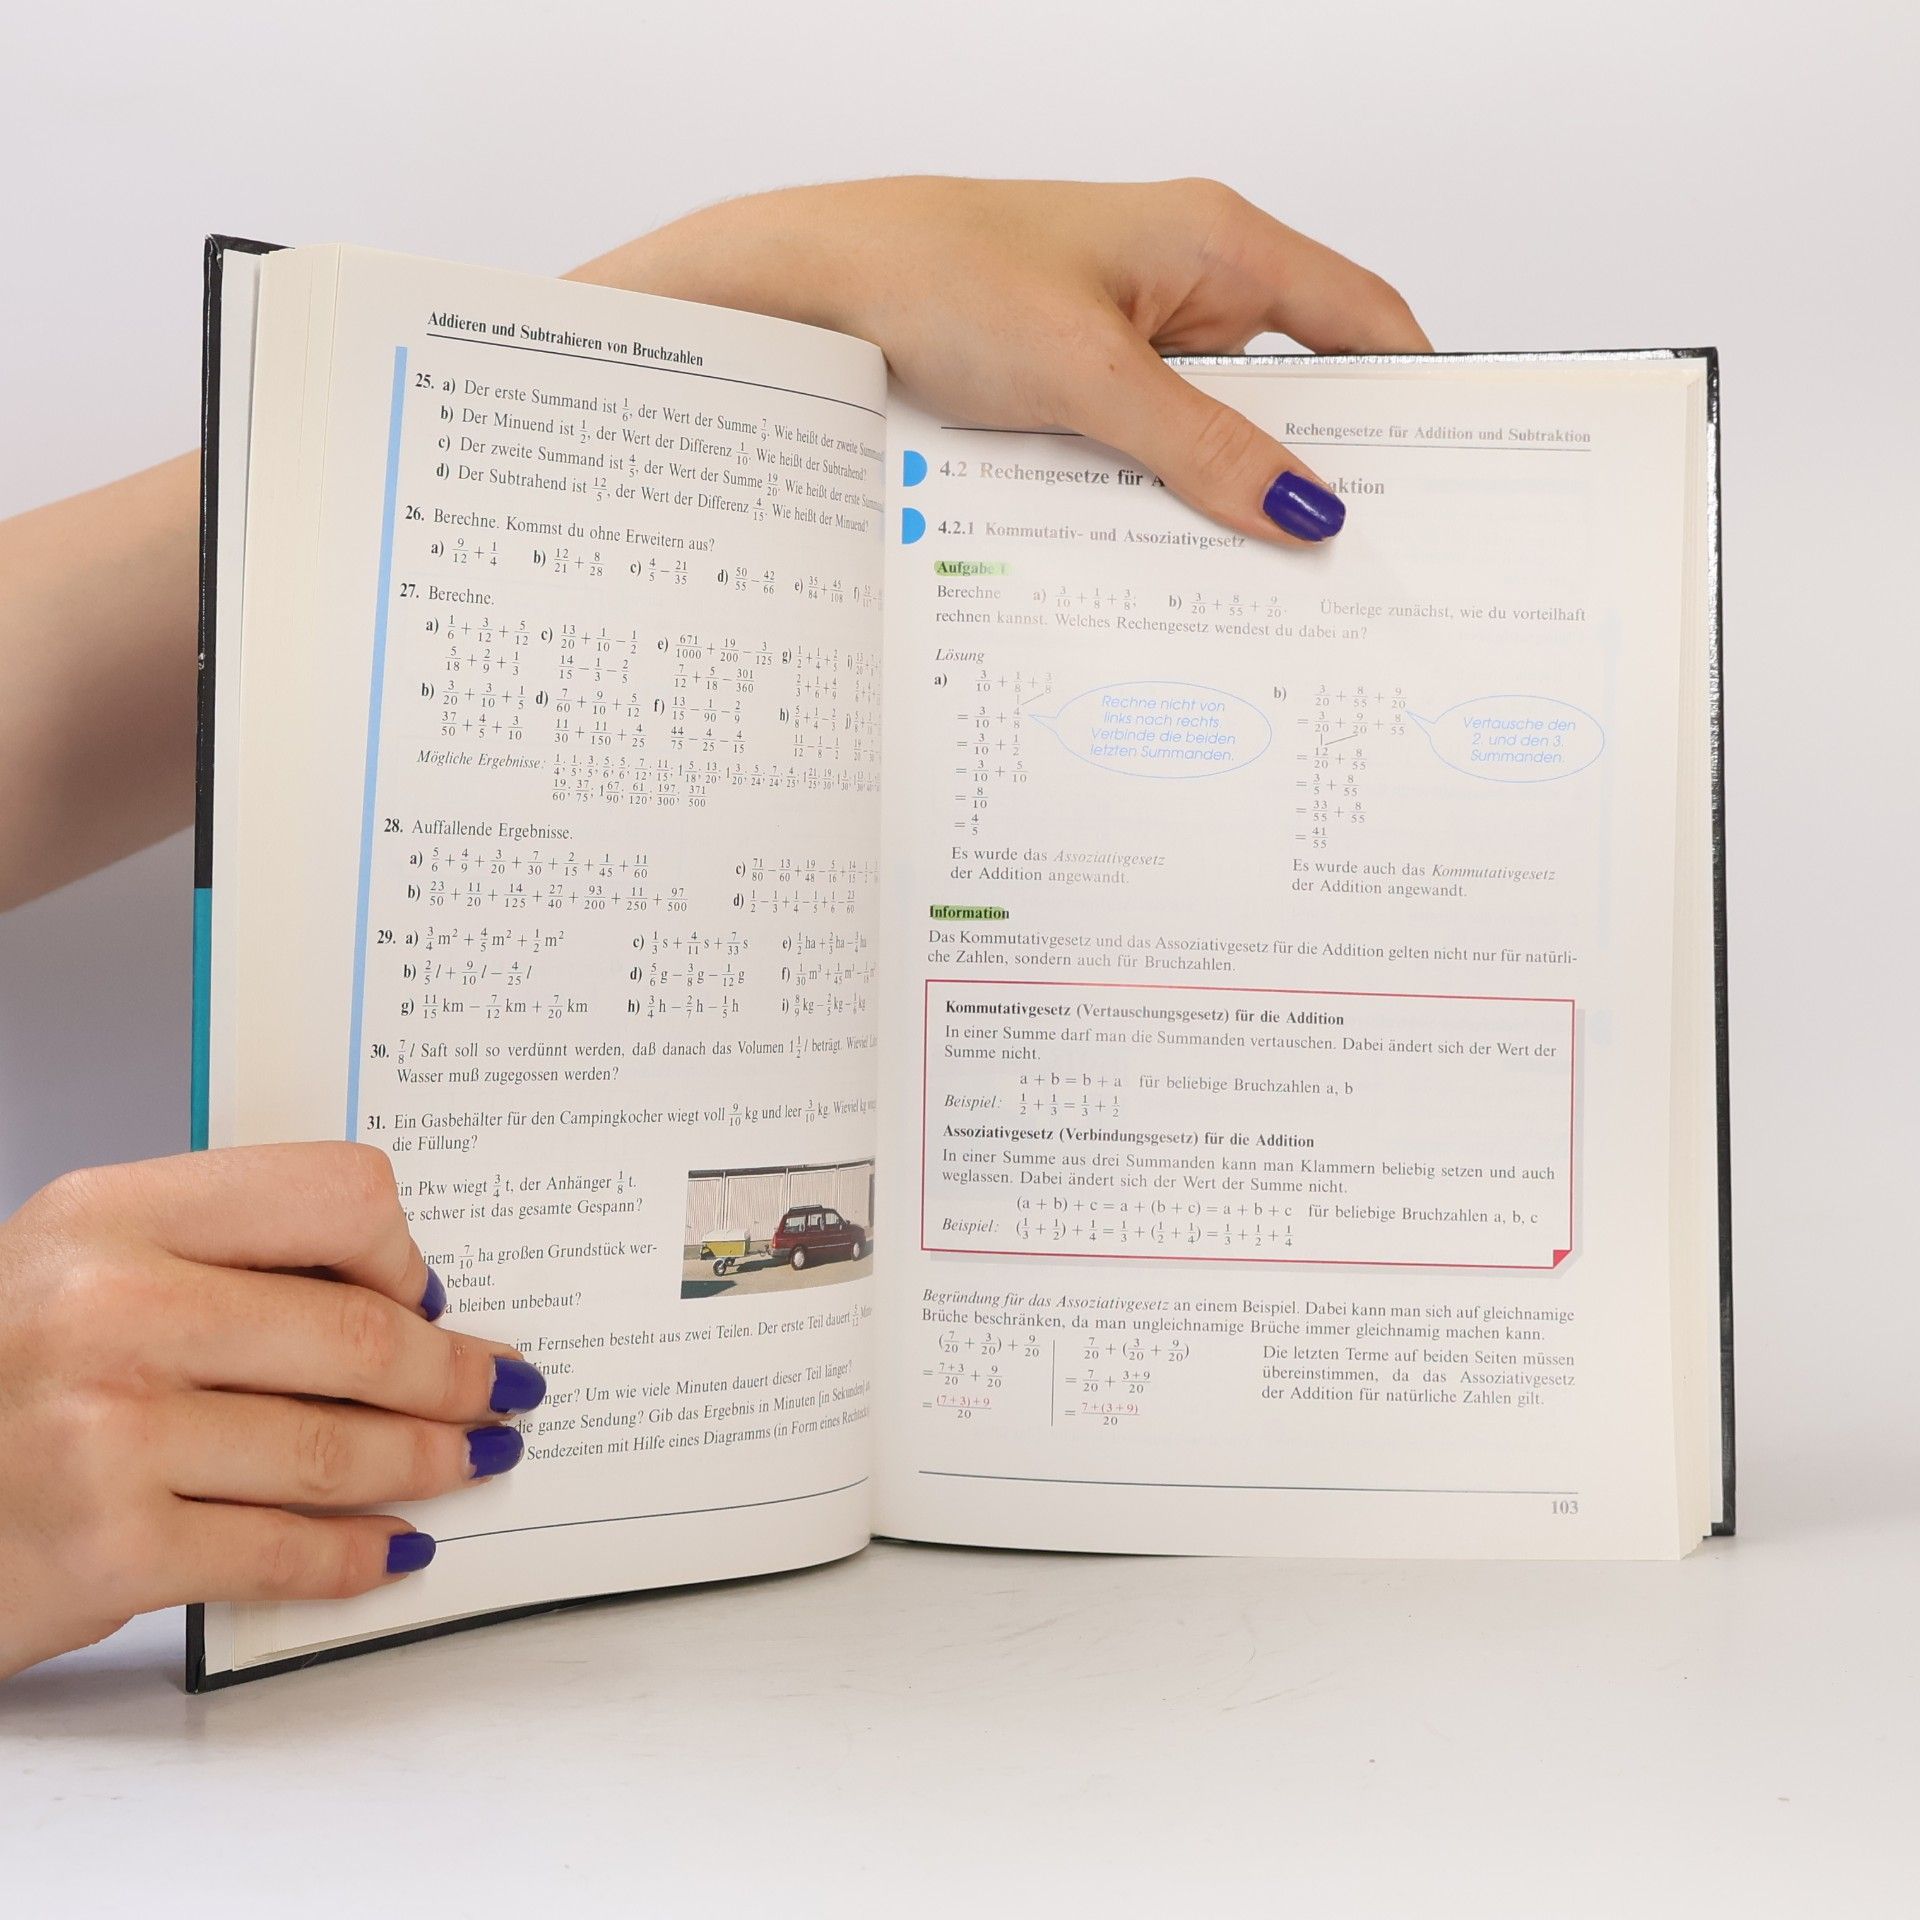 Addieren und Subtrahieren von Bruchzahlen
25. a) Der erste Summand ist 1/6, der Wert der Summe 7/9. Wie heißt der zweite
b) Der Minuend ist 1/2, der Wert der Differenz 1/10. Wie heißt der Subtrahend?
c) Der zweite Summand ist 4/5, der Wert der Summe 19/20. Wie heißt der erste
d) Der Subtrahend ist 12/5, der Wert der Differenz 4/15. Wie heißt der Minuend?
26. Berechne. Kommst du ohne Erweitern aus?
a) 9/12 + 1/4 b) 12/21 + 8/28 c) 4/5 − 21/35 d) 50/55 − 42/66 e) 35/84 + 45/108 f)
27. Berechne.
a) 1/6 + 3/12 + 5/12 c) 13/20 + 1/10 − 1/2 e) 671/1000 + 19/200 − 3/125 g) 1/2 + 1/4 + 2/5 i)
5/18 + 2/9 + 1/3 14/15 − 1/3 − 2/5 7/12 + 5/18 − 301/360 2/3 + 1/6 + 4/9
b) 3/20 + 3/10 + 1/5 d) 7/60 + 9/10 + 5/12 f) 13/15 − 1/90 − 2/9 h) 5/8 + 1/4 − 2/3 j)
37/50 + 4/5 + 3/10 11/30 + 11/150 + 4/25 44/75 − 4/25 − 4/15 11/12 − 1/8 − 1/2
Mögliche Ergebnisse:
19/60; 37/75; 1 67/90; 61/120; 197/300; 371/500
28. Auffallende Ergebnisse.
a) 5/6 + 4/9 + 3/20 + 7/30 + 2/15 + 1/45 + 11/60 c) 71/80 − 13/60 + 19/48 − 5/16 + 14/15
b) 23/50 + 11/20 + 14/125 + 27/40 + 93/200 + 11/250 + 97/500 d) 1/2 − 1/3 + 1/4 − 1/5 + 1/6 − 23/60
29. a) 3/4 m² + 4/5 m² + 1/2 m² c) 1/3 s + 4/11 s + 7/33 s e) 1/2 ha + 2/3 ha − 3/4 ha
b) 2/5 l + 9/10 l − 4/25 l d) 5/6 g − 3/8 g − 1/12 g f) 1/30 m³ + 1/45 m³
g) 11/15 km − 7/12 km + 7/20 km h) 3/4 h − 2/7 h − 1/5 h i) 8/9 kg − 2/5 kg − 1/6 kg
30. 7/8 l Saft soll so verdünnt werden, daß danach das Volumen 1 1/2 l beträgt. Wieviel
Wasser muß zugegossen werden?
31. Ein Gasbehälter für den Campingkocher wiegt voll 9/10 kg und leer 3/10 kg. Wieviel kg
die Füllung?
in Pkw wiegt 3/4 t, der Anhänger 1/8 t.
ie schwer ist das gesamte Gespann?
inem 7/10 ha großen Grundstück wer-
bebaut.
a bleiben unbebaut?
im Fernsehen besteht aus zwei Teilen. Der erste Teil dauert
inute.
nger? Um wie viele Minuten dauert dieser Teil länger?
die ganze Sendung? Gib das Ergebnis in Minuten [in Sekunden]
Sendezeiten mit Hilfe eines Diagramms (in Form eines
Rechengesetze für Addition und Subtraktion
4.2 Rechengesetze für A aktion
4.2.1 Kommutativ- und Assoziativgesetz
Aufgabe 1
Berechne a) 3/10 + 1/8 + 3/8; b) 3/20 + 8/55 + 9/20. Überlege zunächst, wie du vorteilhaft
rechnen kannst. Welches Rechengesetz wendest du dabei an?
Lösung
a) 3/10 + 1/8 + 3/8
= 3/10 + 4/8
= 3/10 + 1/2
= 3/10 + 5/10
= 8/10
= 4/5
Rechne nicht von
links nach rechts.
Verbinde die beiden
letzten Summanden.
Es wurde das Assoziativgesetz
der Addition angewandt.
b) 3/20 + 8/55 + 9/20
= 3/20 + 9/20 + 8/55
= 12/20 + 8/55
= 3/5 + 8/55
= 33/55 + 8/55
= 41/55
Vertausche den
2. und den 3.
Summanden.
Es wurde auch das Kommutativgesetz
der Addition angewandt.
Information
Das Kommutativgesetz und das Assoziativgesetz für die Addition gelten nicht nur für natürli-
che Zahlen, sondern auch für Bruchzahlen.
Kommutativgesetz (Vertauschungsgesetz) für die Addition
In einer Summe darf man die Summanden vertauschen. Dabei ändert sich der Wert der
Summe nicht.
a + b = b + a für beliebige Bruchzahlen a, b
Beispiel: 1/2 + 1/3 = 1/3 + 1/2
Assoziativgesetz (Verbindungsgesetz) für die Addition
In einer Summe aus drei Summanden kann man Klammern beliebig setzen und auch
weglassen. Dabei ändert sich der Wert der Summe nicht.
(a + b) + c = a + (b + c) = a + b + c für beliebige Bruchzahlen a, b, c
Beispiel: (1/3 + 1/2) + 1/4 = 1/3 + (1/2 + 1/4) = 1/3 + 1/2 + 1/4
Begründung für das Assoziativgesetz an einem Beispiel. Dabei kann man sich auf gleichnamige
Brüche beschränken, da man ungleichnamige Brüche immer gleichnamig machen kann.
(7/20 + 3/20) + 9/20
= (7+3)/20 + 9/20
= ((7+3)+9)/20
7/20 + (3/20 + 9/20)
= 7/20 + (3+9)/20
= (7+(3+9))/20
Die letzten Terme auf beiden Seiten müssen
übereinstimmen, da das Assoziativgesetz
der Addition für natürliche Zahlen gilt.
103